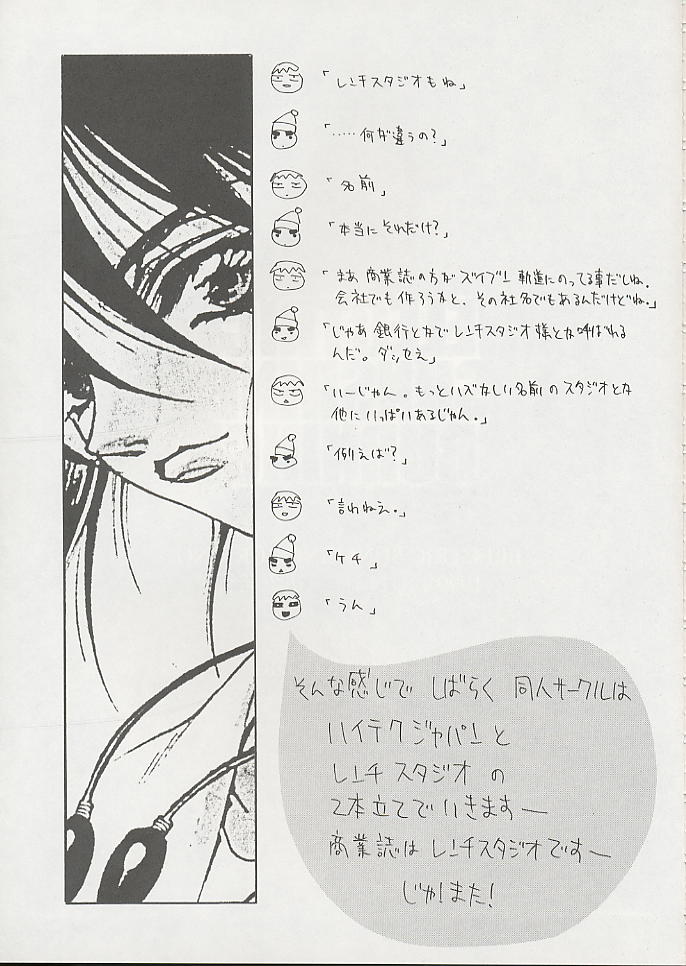 「レンチスタジオもね」
「……何が違うの?」
「名前」
「本当にそれだけ?」
「まあ 商業誌の方が ズイブン 軌道にのってる事だしね.
会社でも作ろうかと、その社名でもあるんだけどね。」
「じゃあ 銀行とかで レンチスタジオ様とか呼ばれる
んだ。ダッセえ」
「いーじゃん。もっとハズかしい名前の スタジオとか
他に いっぱいあるじゃん。」
「例えば?」
「言わねえ.」
「ケチ」
「うん」
そんな感じで しばらく 同人サークルは
ハイテクジャパンと
レンチ スタジオ の
2本立てで いきますー
商業誌は レンチスタジオですー
じゃ!また!